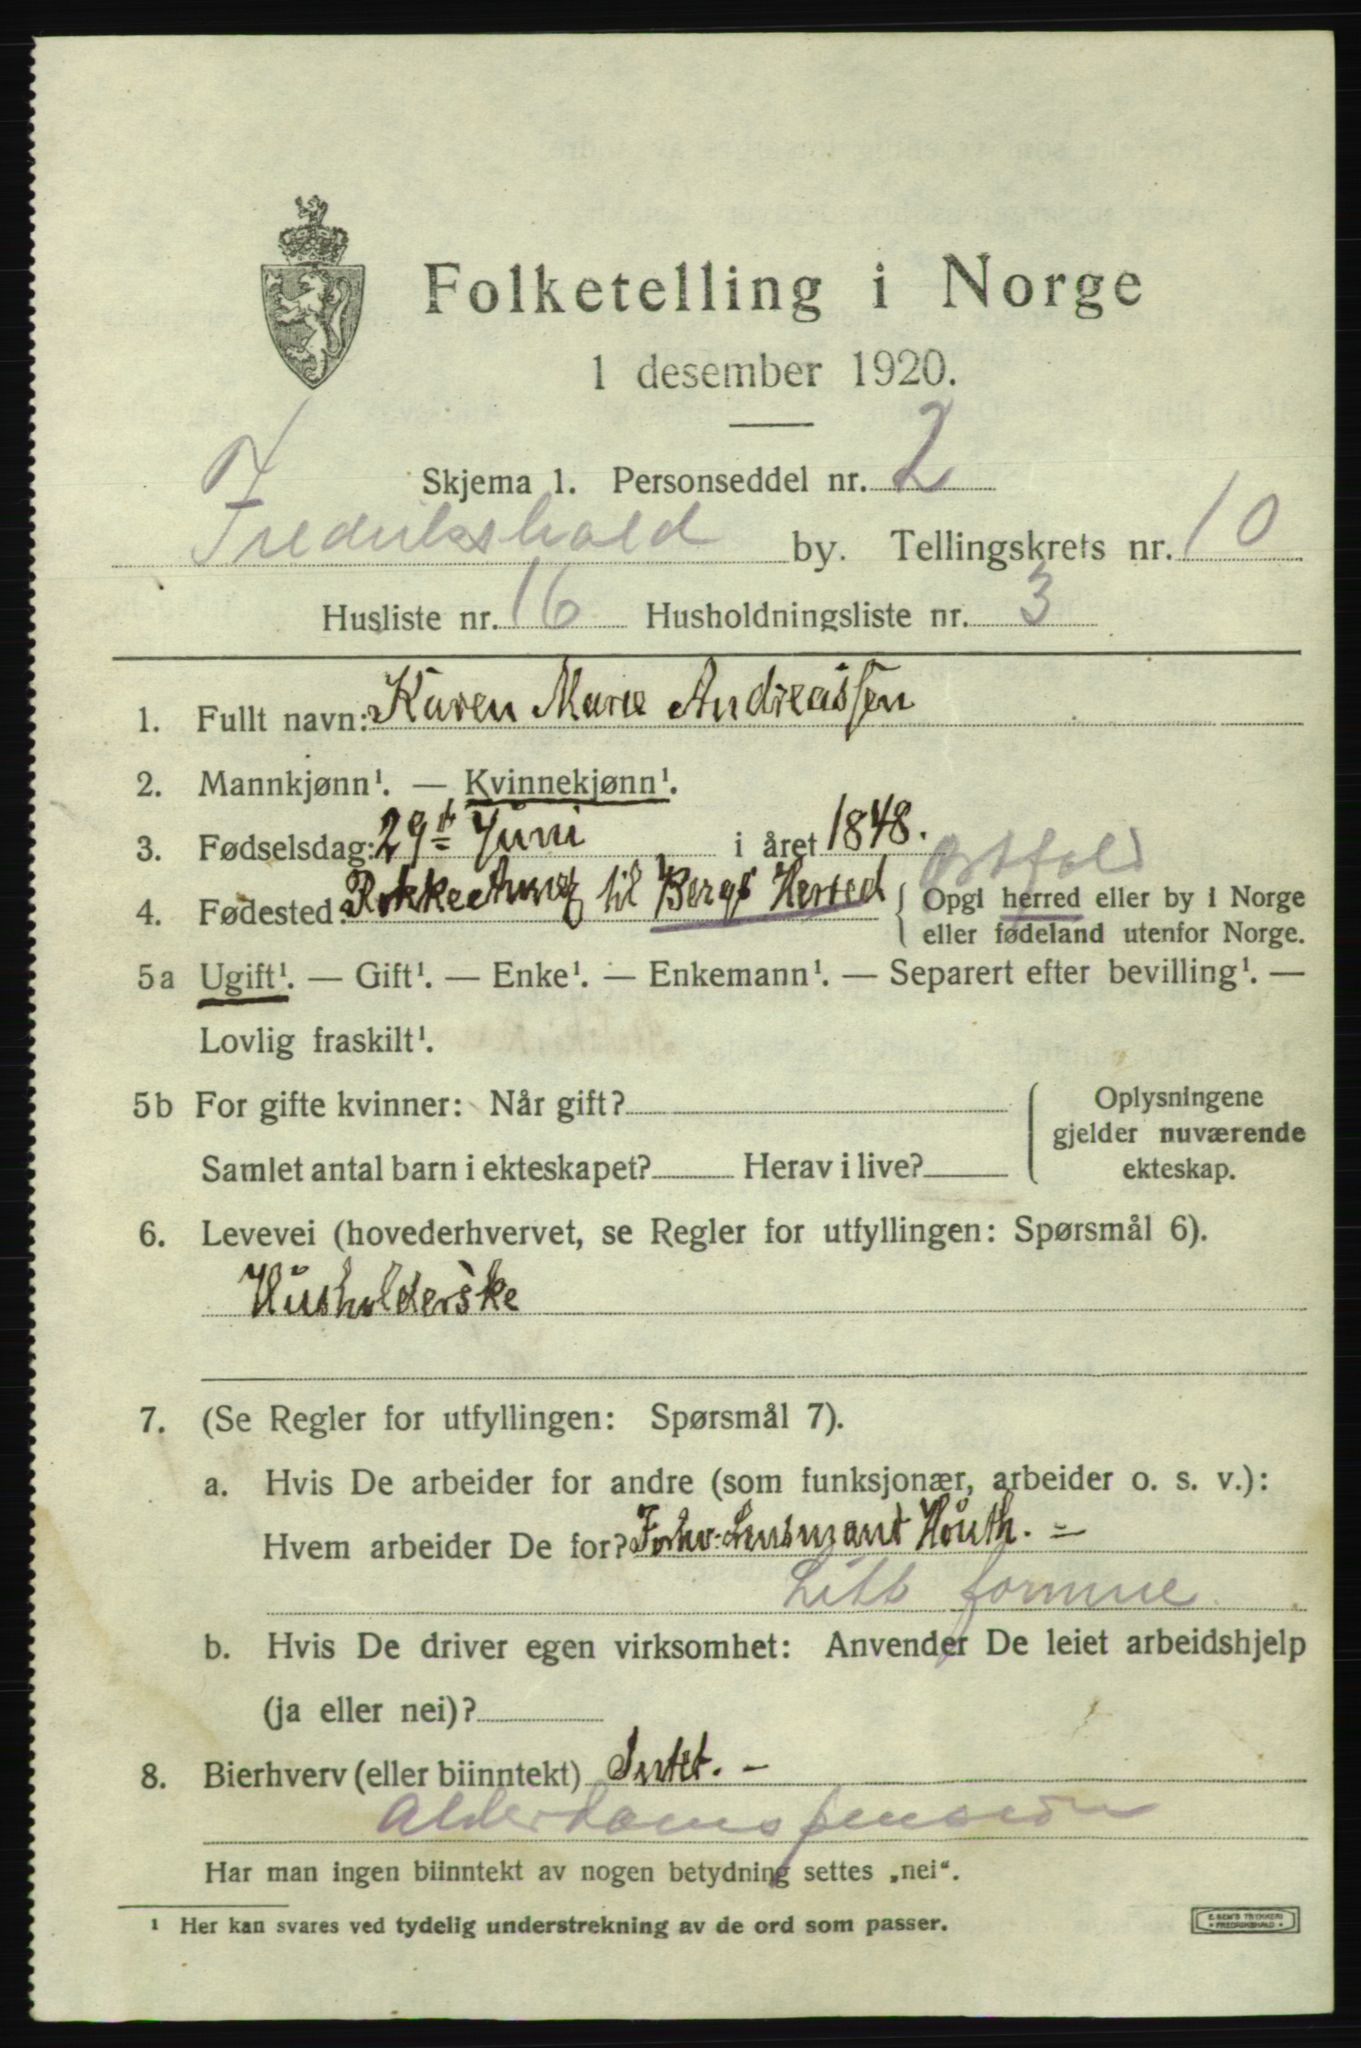 Folketelling i Norge
1 desember 1920.
Skjema 1. Personseddel nr. 2
Fredrikshald by. Tellingskrets nr. 10
Husliste nr. 16 Husholdningsliste nr. 3
1. Fullt navn: Karen Marie Andreassen
2. Mannkjønn¹. — Kvinnekjønn¹.
3. Fødselsdag: 29de Juni i året 1848.
Østfold
4. Fødested: Rokke til Bergs Herred { Opgi herred eller by i Norge
eller fødeland utenfor Norge.
5a Ugift¹. — Gift¹. — Enke¹. — Enkemann¹. — Separert efter bevilling¹. —
Lovlig fraskilt¹.
5b For gifte kvinner: Når gift?
Samlet antal barn i ekteskapet? Herav i live?
Oplysningene
gjelder nuværende
ekteskap.
6. Levevei (hovederhvervet, se Regler for utfyllingen: Spørsmål 6).
Husholderske
7. (Se Regler for utfyllingen: Spørsmål 7).
a. Hvis De arbeider for andre (som funksjonær, arbeider o. s. v.):
Hvem arbeider De for? Forhv. Lensmand Houth. =
Litt formue
b. Hvis De driver egen virksomhet: Anvender De leiet arbeidshjelp
(ja eller nei)?
8. Bierhverv (eller biinntekt) Intet. –
Alderdomspension
Har man ingen biinntekt av nogen betydning settes „nei“.
¹ Her kan svares ved tydelig understrekning av de ord som passer.
E. SEM'S TRYKKERI
• FREDRIKSHALD •